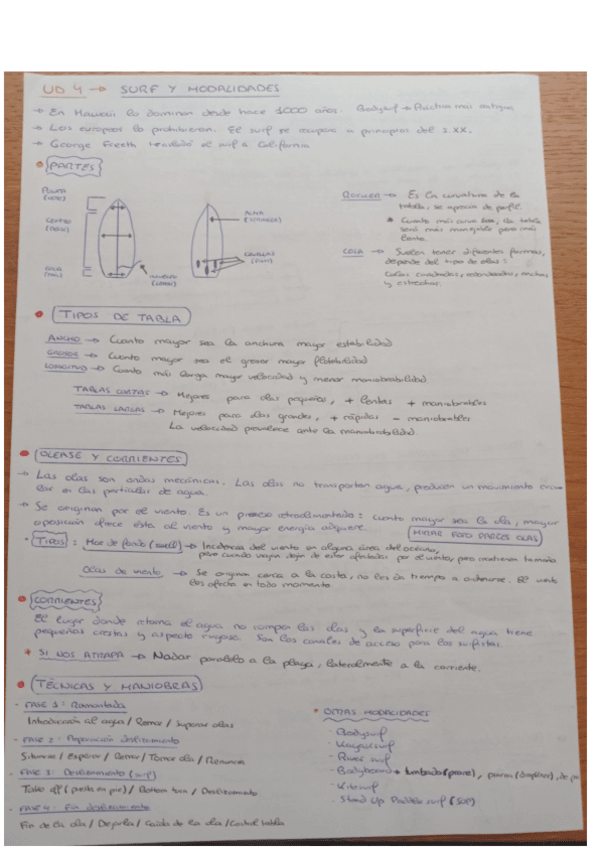 UD 4 → SURF Y MODALIDADES
→ En Hawaii lo dominan desde hace 1000 años. Bodysurf → Práctica más antigua
→ Los europeos lo prohibieron. El surf se recupera a principios del s.XX.
→ George Freeth el surf a California
PARTES
PUNTA
(NOSE)
CENTRO
COLA
(TAIL)
INVENTO
(LEASH)
ALMA
(STRINGER)
QUILLAS
(FINS)
ROCKER → Es la curvatura de la
tabla, se aprecia de perfil.
* Cuanto más curva sea, la tabla
será más manejable pero más
lenta.
COLA → Suelen tener diferentes formas,
depende del tipo de olas:
Colas cuadradas, redondeadas, anchas
y estrechas.
TIPOS DE TABLA
ANCHO → Cuanto mayor sea la anchura mayor estabilidad
GROSOR → Cuanto mayor sea el grosor mayor flotabilidad
LONGITUD → Cuanto más larga mayor velocidad y menor maniobrabilidad
TABLAS CORTAS → Mejores para olas pequeñas, + lentas + maniobrables
TABLAS LARGAS → Mejores para olas grandes, + rápidas - maniobrables
La velocidad prevalece ante la maniobrabilidad.
OLEAJE Y CORRIENTES
→ Las olas son ondas mecánicas. Las olas no transportan agua, producen un movimiento circu
lar en las partículas de agua.
→ Se originan por el viento. Es un proceso retroalimentado: cuanto mayor sea la ola, mayor
oposición ofrece ésta al viento y mayor energía adquiere. MIRAR FOTO PARTES OLAS
· TIPOS : Mar de fondo (swell) → Incidencia del viento en alguna área del océano,
pero cuando viajan dejan de estar afectadas por el viento, pero mantienen tamaño
Olas de viento → Se originan cerca a la costa, no les da tiempo a ordenarse. El viento
les afecta en todo momento.
CORRIENTES
El lugar donde retorna el agua no rompen las olas y la superficie del agua tiene
pequeñas crestas y aspecto rugoso. Son los canales de acceso para los surfistas.
* SI NOS ATRAPA → Nadar paralelo a la playa, lateralmente a la corriente.
TÉCNICAS Y MANIOBRAS
- FASE 1: Remontada
Introducción al agua / Remar / Superar olas
- FASE 2: Preparación deslizamiento
Situarse / Esperar / Remar / Tomar ola / Renuncia
- FASE 3: Deslizamiento (surf)
Take off (puesta en pie) / Bottom turn / Deslizamiento
- FASE 4: Fin deslizamiento
Fin de la ola / Dejarla / Caída de la ola / Control tabla
* OTRAS MODALIDADES
· Bodysurf
· Kayaksurf
· River surf
· Bodyboard → tumbado (prone), (dropknee), de pie
· Kitesurf
· Stand Up Paddle surf (SUP)